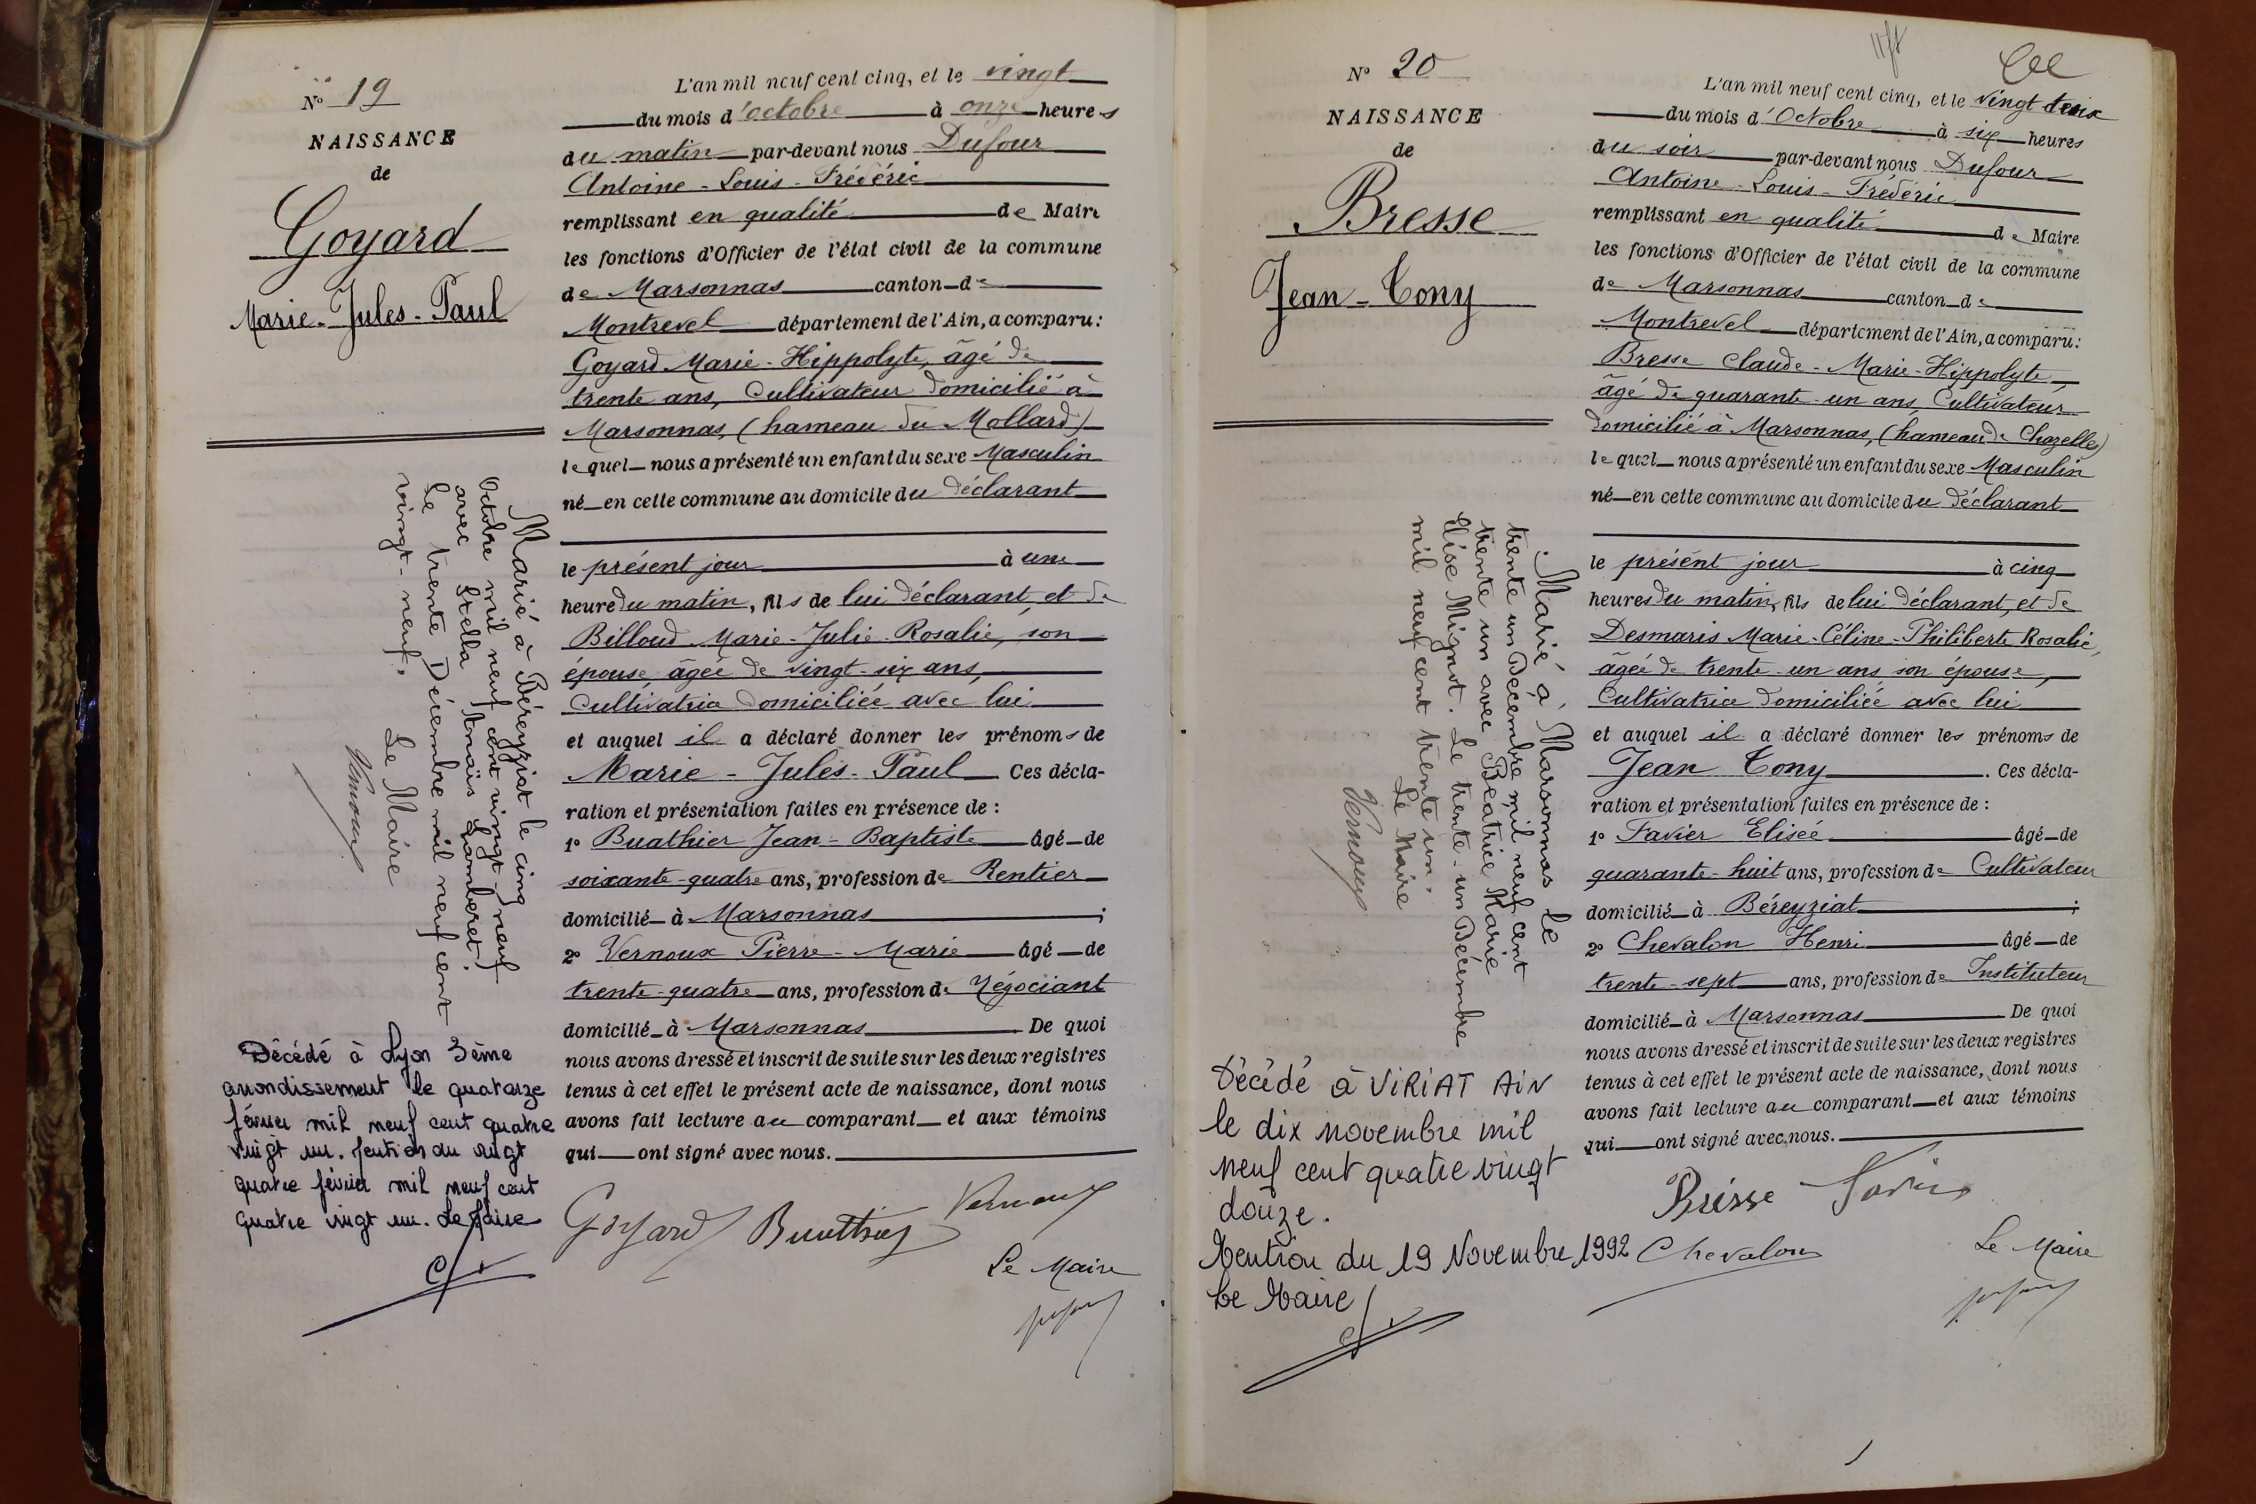 N° 19
NAISSANCE
de
Goyard
Marie-Jules-Paul
L'an mil neuf cent cinq, et le vingt
du mois d'octobre à onze heures
du matin par-devant nous Dufour
Antoine-Louis-Frédéric
remplissant en qualité de Maire
les fonctions d'Officier de l'état civil de la commune
de Marsonnas canton de
Montrevel département de l'Ain, a comparu :
Goyard Marie-Hippolyte, âgé de
trente ans, Cultivateur domicilié à
Marsonnas, (hameau du Mollard)
lequel nous a présenté un enfant du sexe Masculin
né en cette commune au domicile du déclarant
le présent jour à une
heure du matin, fils de lui déclarant, et de
Billoud Marie-Julie-Rosalie, son
épouse âgée de vingt-six ans,
Cultivatrice domiciliée avec lui
et auquel il a déclaré donner les prénoms de
Marie-Jules-Paul Ces décla-
ration et présentation faites en présence de :
1° Buathier Jean-Baptiste âgé de
soixante-quatre ans, profession de Rentier
domicilié à Marsonnas ;
2° Vernoux Pierre-Marie âgé de
trente-quatre ans, profession de Négociant
domicilié à Marsonnas De quoi
nous avons dressé et inscrit de suite sur les deux registres
tenus à cet effet le présent acte de naissance, dont nous
avons fait lecture au comparant et aux témoins
qui ont signé avec nous.
Goyard Buathier Vernoux
Le Maire
Marié à Béreyziat le cinq
Octobre mil neuf cent vingt-neuf
avec Stella Anaïs Lamberet.
Le trente Décembre mil neuf cent
vingt-neuf.
Le Maire
Vernoux
Décédé à Lyon 3ème
arrondissement le quatorze
février mil neuf cent quatre
vingt un. Mention du vingt
quatre février mil neuf cent
quatre vingt un. Le Maire
N° 20
NAISSANCE
de
Bresse
Jean-Tony
L'an mil neuf cent cinq, et le vingt deux
du mois d'Octobre à six heures
du soir par-devant nous Dufour
Antoine-Louis-Frédéric
remplissant en qualité de Maire
les fonctions d'Officier de l'état civil de la commune
de Marsonnas canton de
Montrevel département de l'Ain, a comparu :
Bresse Claude-Marie-Hippolyte,
âgé de quarante-un ans, Cultivateur
domicilié à Marsonnas, (hameau de Chazelle)
lequel nous a présenté un enfant du sexe Masculin
né en cette commune au domicile du déclarant
le présent jour à cinq
heures du matin, fils de lui déclarant, et de
Desmaris Marie-Céline-Philiberte Rosalie,
âgée de trente-un ans son épouse,
Cultivatrice domiciliée avec lui
et auquel il a déclaré donner les prénoms de
Jean Tony . Ces décla-
ration et présentation faites en présence de :
1° Favier Elisée âgé de
quarante-huit ans, profession de Cultivateur
domicilié à Béreyziat ;
2° Chevalon Henri âgé de
trente-sept ans, profession de Instituteur
domicilié à Marsonnas De quoi
nous avons dressé et inscrit de suite sur les deux registres
tenus à cet effet le présent acte de naissance, dont nous
avons fait lecture au comparant et aux témoins
qui ont signé avec nous.
Bresse Favier
Chevalon Le Maire
Marié à Marsonnas le
trente un Décembre mil neuf cent
trente un avec Béatrice Marie
Elise Mignot. Le trente-un Décembre
mil neuf cent trente un.
Le Maire
Vernoux
Décédé à VIRIAT AIN
le dix novembre mil
neuf cent quatre vingt
douze.
Mention du 19 Novembre 1992
Le Maire